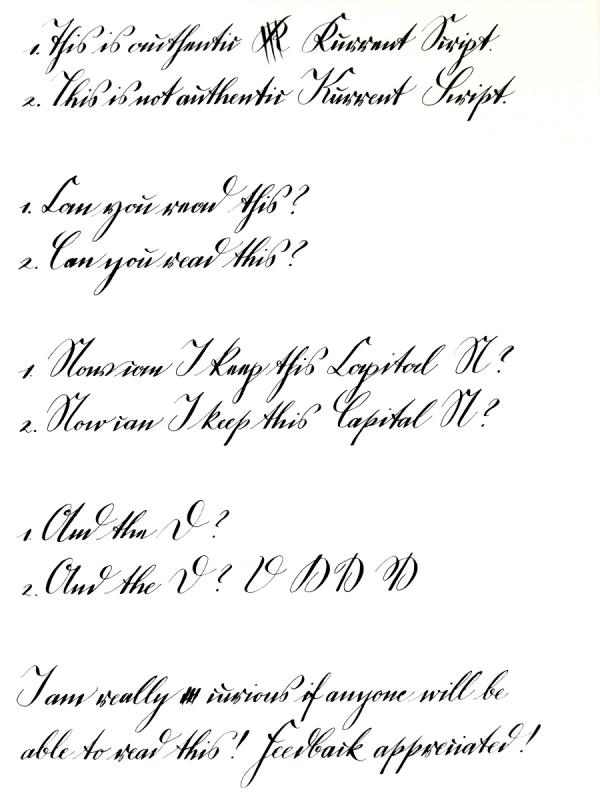 1. This is authentic Kurrent Script.
2. This is not authentic Kurrent Script.
1. Can you read this?
2. Can you read this?
1. Now can I keep this Capital N?
2. Now can I keep this Capital N?
1. And the D?
2. And the D? D D D D
I am really curious if anyone will be
able to read this! Feedback appreciated!